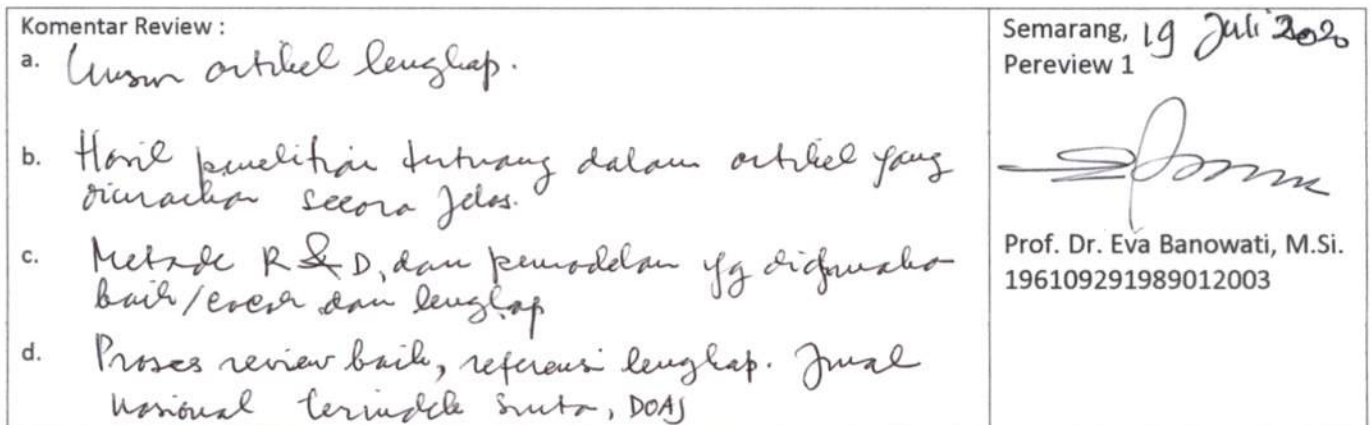 Komentar Review :
a. Unsur artikel lengkap.
b. Hasil penelitian tertuang dalam artikel yang
diuraikan secara jelas.
c. Metode R & D, dan pemodelan yg digunakan
baik/cocok dan lengkap
d. Proses review baik, referensi lengkap. Jurnal
Nasional terindeks Sinta, DOAJ
Semarang, 19 Juli 2020
Pereview 1
Prof. Dr. Eva Banowati, M.Si.
196109291989012003